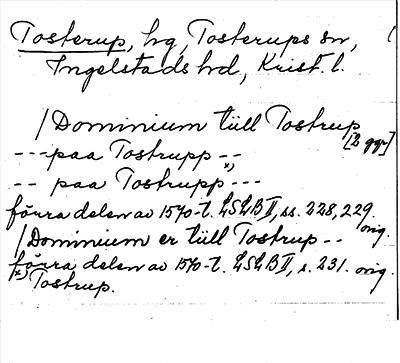 Tosterup, hg, Tosterups sn, (
Ingelstads hd, Krist. l.
/Dominium tüll Tostrup
[2 ggr]
---paa Tostrupp --
-- paa Tostrupp x) ---
förra delen av 1570-t. LSLB II, ss. 228, 229. orig.
/Dominium er tüll Tostrup --
förra delen av 1570-t. LSLB II, s. 231. orig.
x) Tostrup.